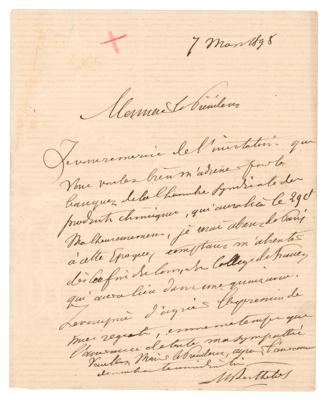 7 Mars 1898
Monsieur le Président
Je vous remercie de l'invitation que
vous voulez bien m'adresser pour le
banquet de la Chambre Syndicale des
produits chimiques, qui aura lieu le 29 ct
Malheureusement, je serai absent de Paris
à cette époque, comptant m'absenter
dès la fin de Collège de France,
qui aura lieu dans une quinzaine.
Je vous prie d'agréer l'expression de
mes regrets, en même temps que
l'assurance de toute ma sympathie
Veuillez, Monsieur le Président, agréer l'assurance
de
M Berthelot